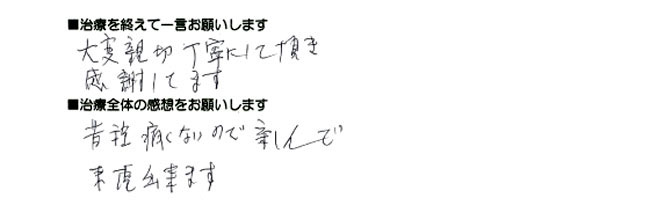 ■治療を終えて一言お願いします
大変親切丁寧にして頂き
感謝してます
■治療全体の感想をお願いします
昔程痛くないので楽しんで
来院出来ます